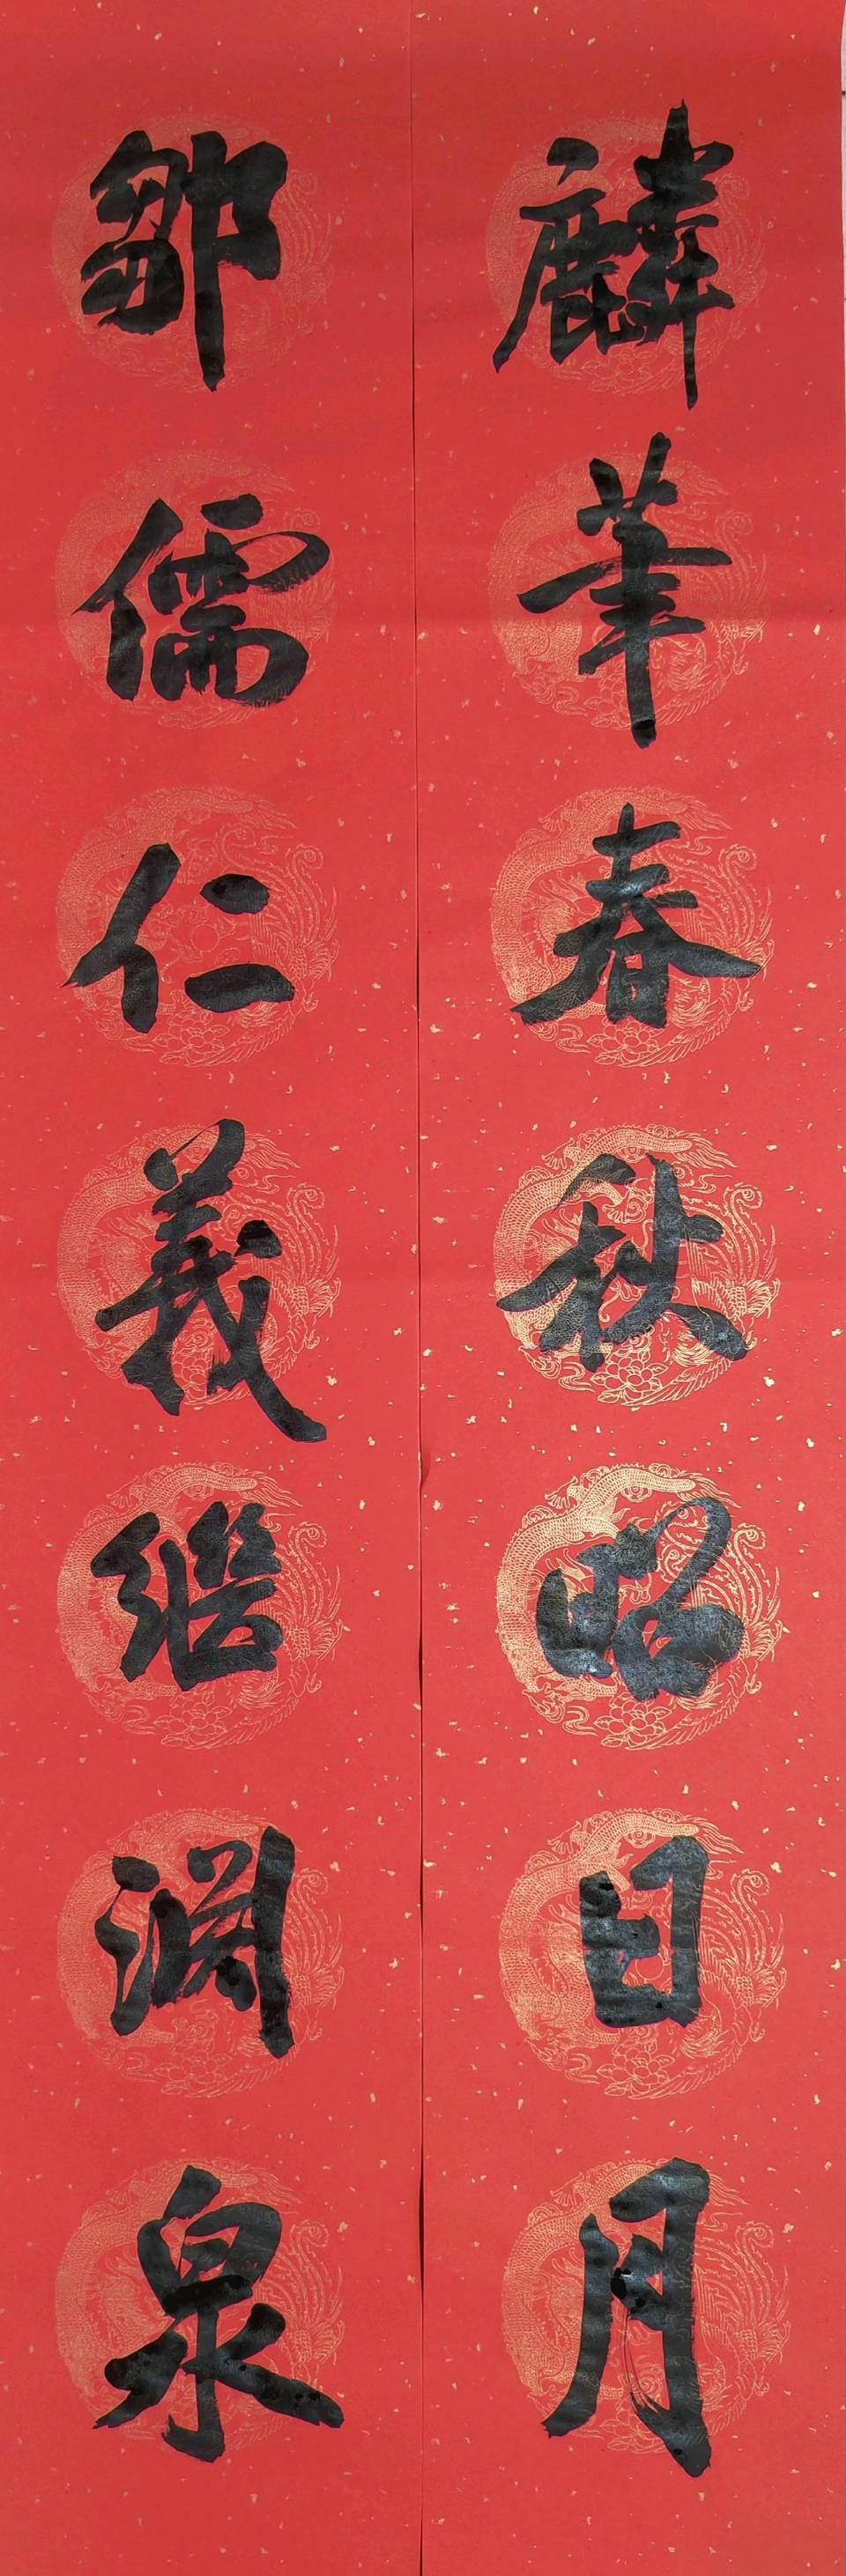 麟筆春秋昭日月
鄒儒仁義繼淵泉